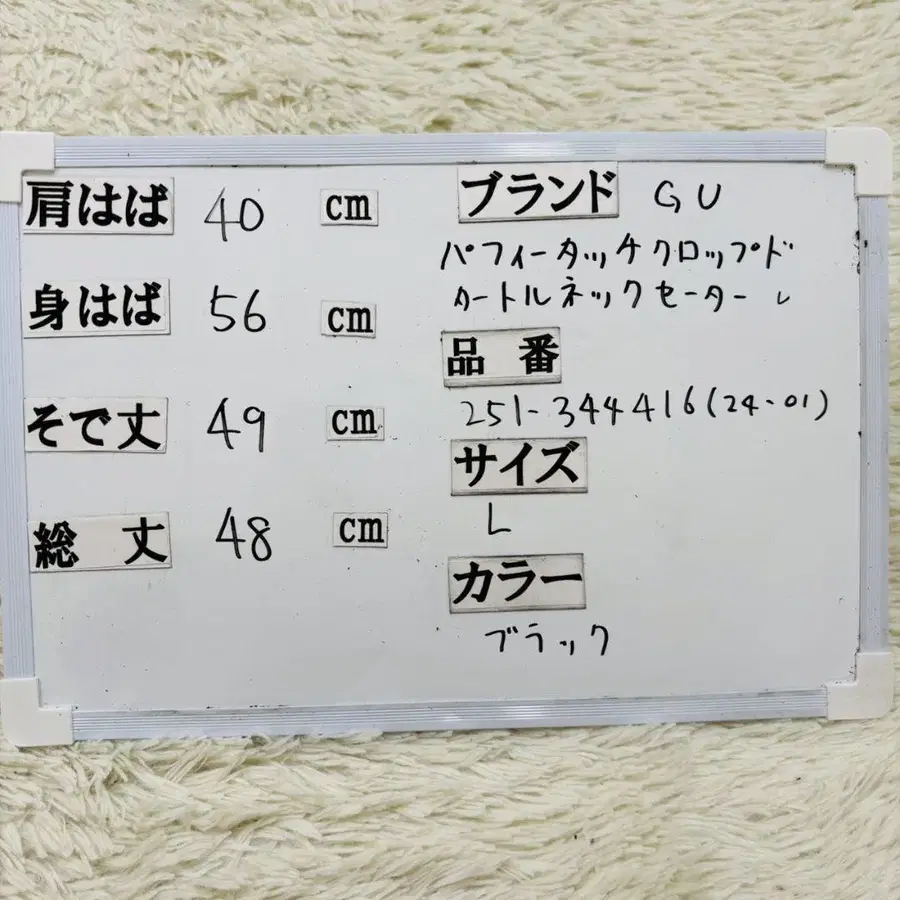 肩はば 40 cm
身はば 56 cm
そで丈 49 cm
総丈 48 cm
ブランド GU
パフィータッチクロップド
タートルネックセーター L
品番
251-344416(24-01)
サイズ
L
カラー
ブラック